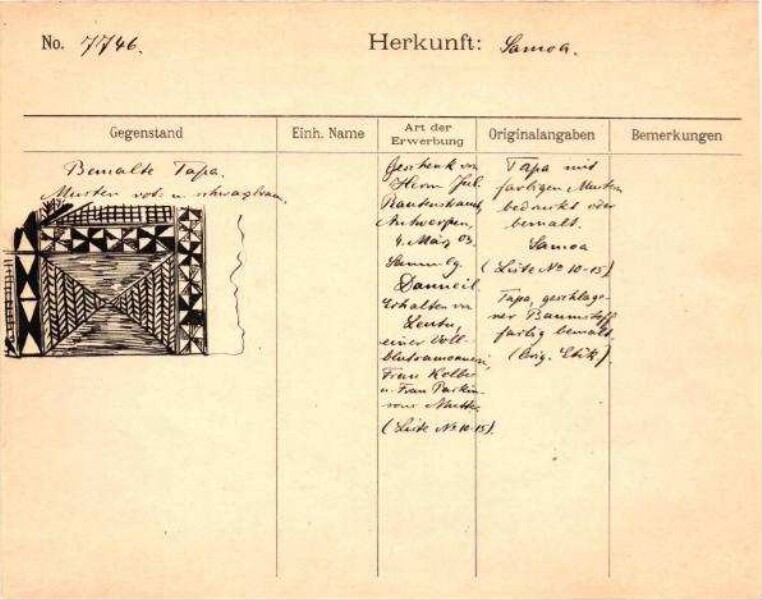 No. 7746.
Herkunft: Samoa.
Gegenstand
Einh. Name
Art der
Erwerbung
Originalangaben
Bemerkungen
Bemalte Tapa.
Muster rot u. schwazbraun.
Geschenk von
Herrn Jul.
Rautenstrauch,
Antwerpen,
4. März 03.
Sammlg.
Danneil.
Erhalten von
einer Voll-
blutsamoanerin,
Frau Kolbe
u. Frau Parkin-
sons Mutter.
(Liste No 10-15).
Tapa mit
farbigen Mustern
bedruckt oder
bemalt.
Samoa
(Liste No 10-15)
Tapa, geschlage-
ner Baumstoff
farbig bemalt.
(Orig. Etik).